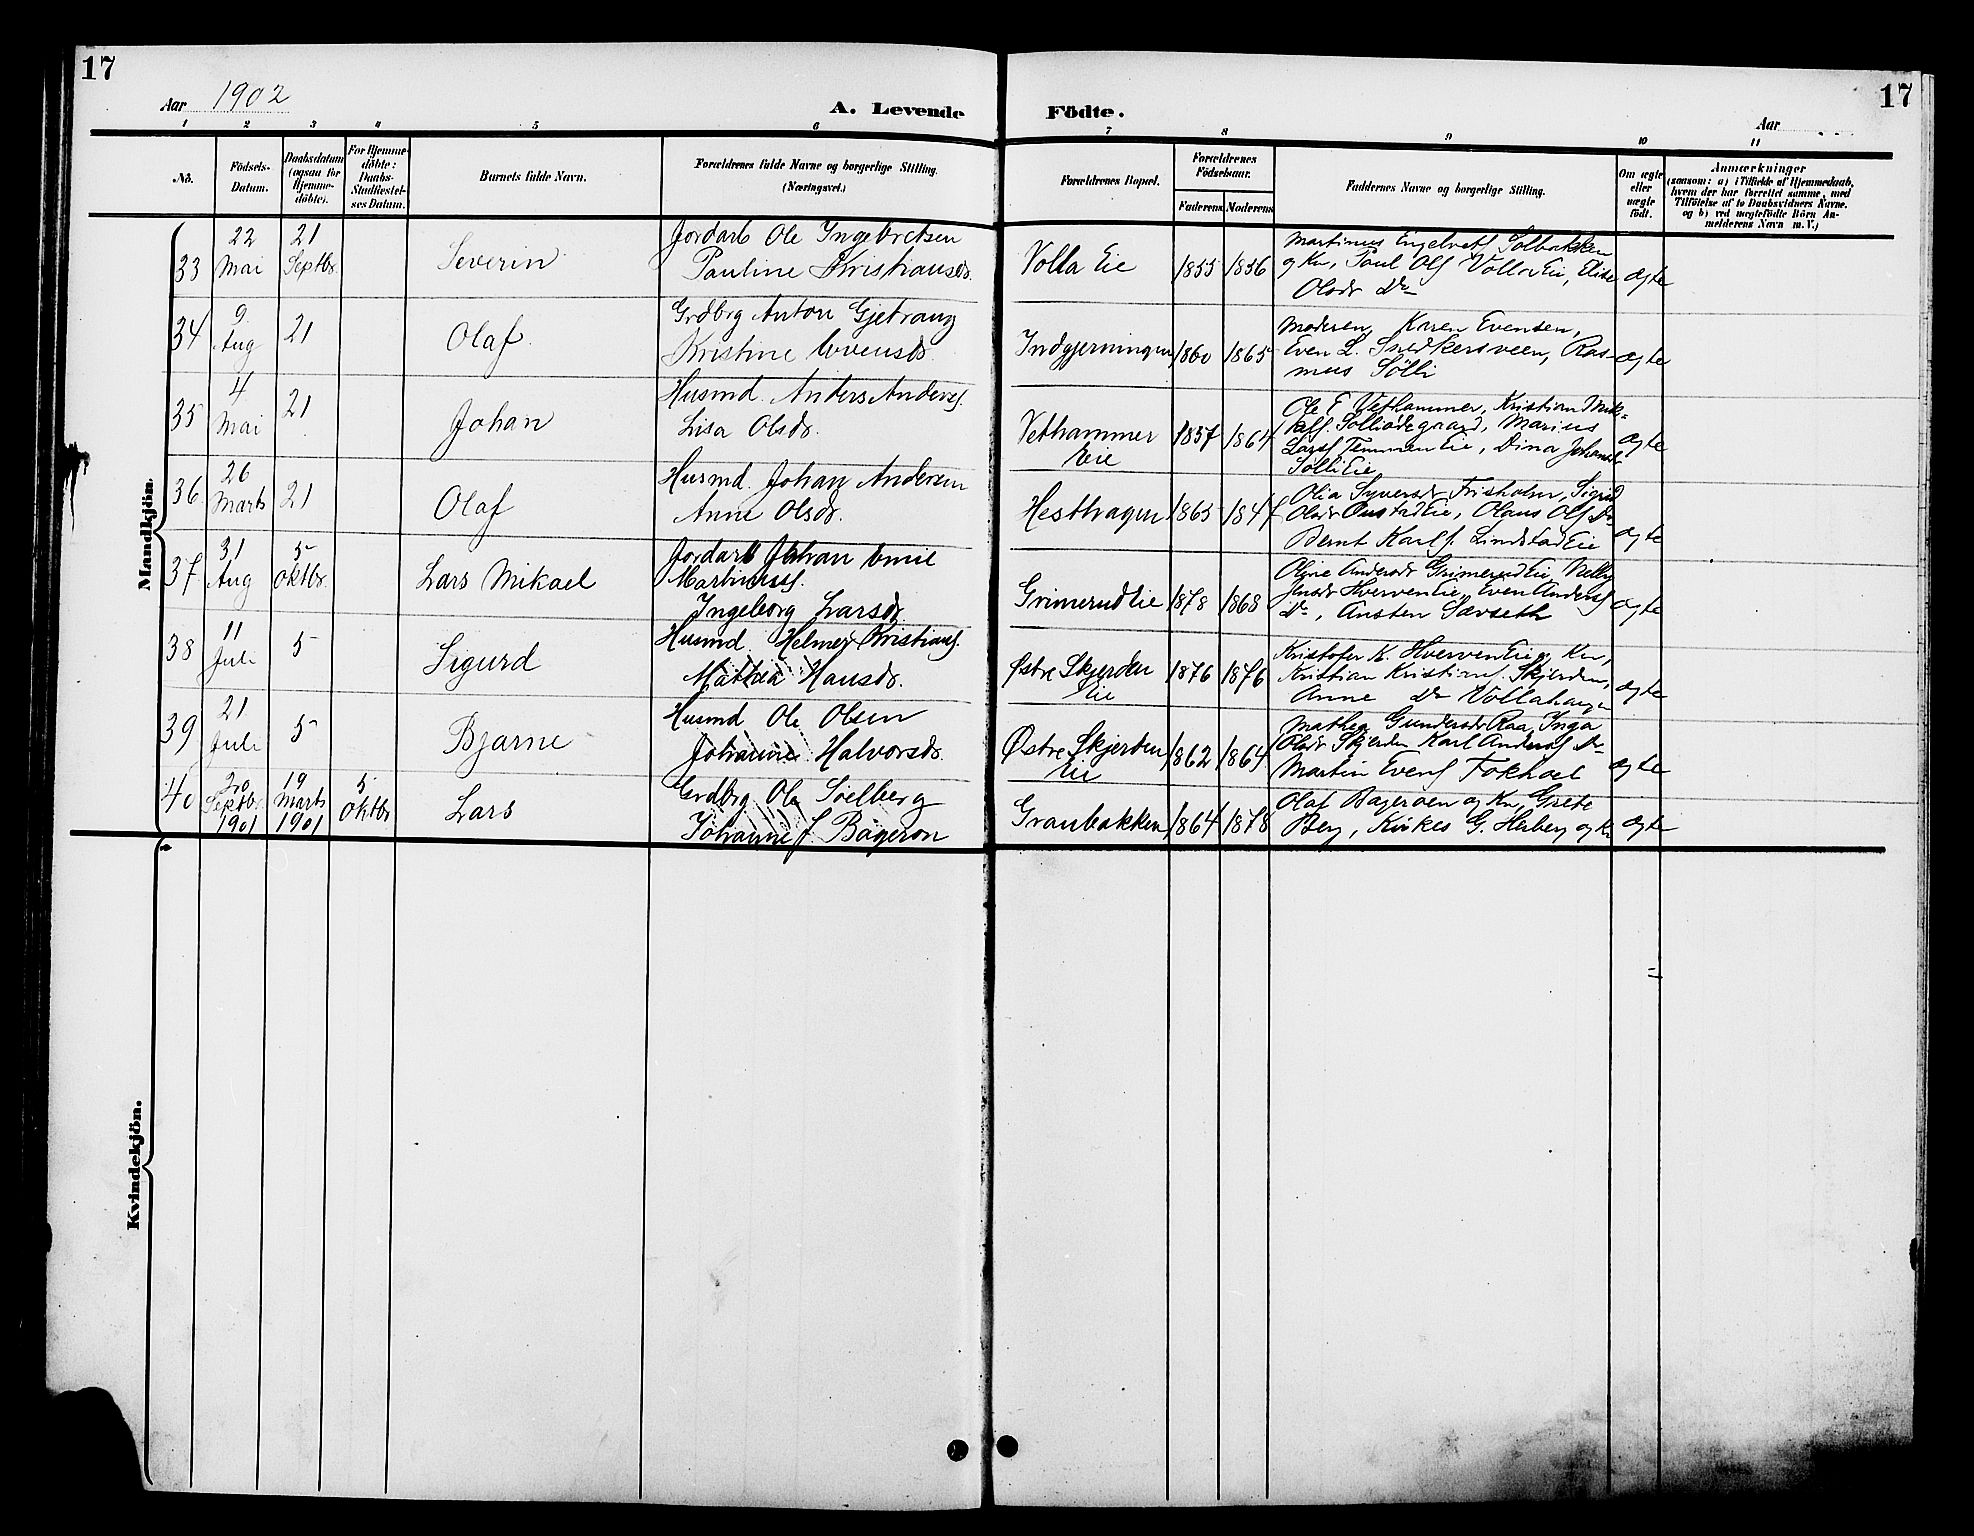 17
Aar 1902
A. Levende
Födte.
17
Aar
1 2 3 4 5 6 7 8 9 10 11
No.
Födsels-
Datum.
Daabsdatum
(ogsaa for
Hjemme-
döbte).
For Hjemme-
döbte:
Daabs-
Stadfæstel-
ses Datum.
Barnets fulde Navn.
Forældrenes fulde Navne og borgerlige Stilling.
(Næringsvei.)
Forældrenes Bopæl.
Forældrenes
Födselsaar.
Faderens
Moderens
Faddernes Navne og borgerlige Stilling.
Om ægte
eller
uægte
födt.
Anmærkninger
(saasom: a) i Tilfælde af Hjemmedaab,
hvem der har forrettet samme, med
Tilföielse af to Daabsvidners Navne.
og b) ved uægtefödte Börn An-
melderens Navn m. V.)
Mandkjön.
33
22
Mai
21
Septbr.
Severin
Jordarb Ole Ingebretsen
Pauline Kristiansdr.
Volla Eie
1855
1856
Martinus Engelvets Solbakken
og Kn, Paul Ols Volla Eie, Elise
Olsdr Do
ægte
34
9
Aug
21
Olaf
Grdbrg Anton Gjetrang
Kristine Evensdr.
Indgjerningen
1860
1865
Moderen, Karen Evensen,
Even L. Snedkersveen, Ras-
mus Sölli
ægte
35
4
Mai
21
Johan
Husmd. Anders Anders.
Lisa Olsdr.
Vethammer
Eie
1857
1864
Ole E Vethammer, Kristian Mik-
kels. Solliödegaard, Marius
Lars. Temmen Eie, Dina Johansdr
Sölli Eie
ægte
36
26
Marts
21
Olaf
Husmd. Johan Andersen
Anne Olsdr.
Hesthagen
1865
1847
Olia Syversdr Frisholm, Sigrid
Olsdr Onstad Eie, Olaus Ols Do
Bernt Karls. Lindstad Eie
ægte
37
31
Aug
5
Oktbr.
Lars Mikael
Jordarb Johan Emil
Martinius.
Ingeborg Larsdr
Grimerud Eie
1878
1868
Oline Andersdr Grimerud Eie, Nelly
Jensdr Hverven Eie, Even Anders
Do, Austen Sævseth
ægte
38
11
Juli
5
Sigurd
Husmd. Helmer Kristians.
Mathea Hansdr.
Østre Skjerden
Eie
1876
1876
Kristofer K. Hverven Eie og Kn,
Kristian Kristians. Skjerden,
Anne Do Vollahagen
ægte
39
21
Juli
5
Bjarne
Husmd Ole Olsen
Johanne Halvorsdr.
Østre Skjerden
Eie
1862
1864
Mathea Gundersdr Raa, Inga
Olsdr Skjerden Karl Anders Do
Martin Evens Fokhoel
ægte
40
20
Septbr.
1901
19
Marts
1901
5
Oktbr
Lars
Grdbrg Ole Soelberg
Johanne J. Bageron
Granbakken
1864
1878
Olaf Bageroen og Kn, Grete
Berg, Kirkes G. Herberg og Kn
ægte
Kvindekjön.